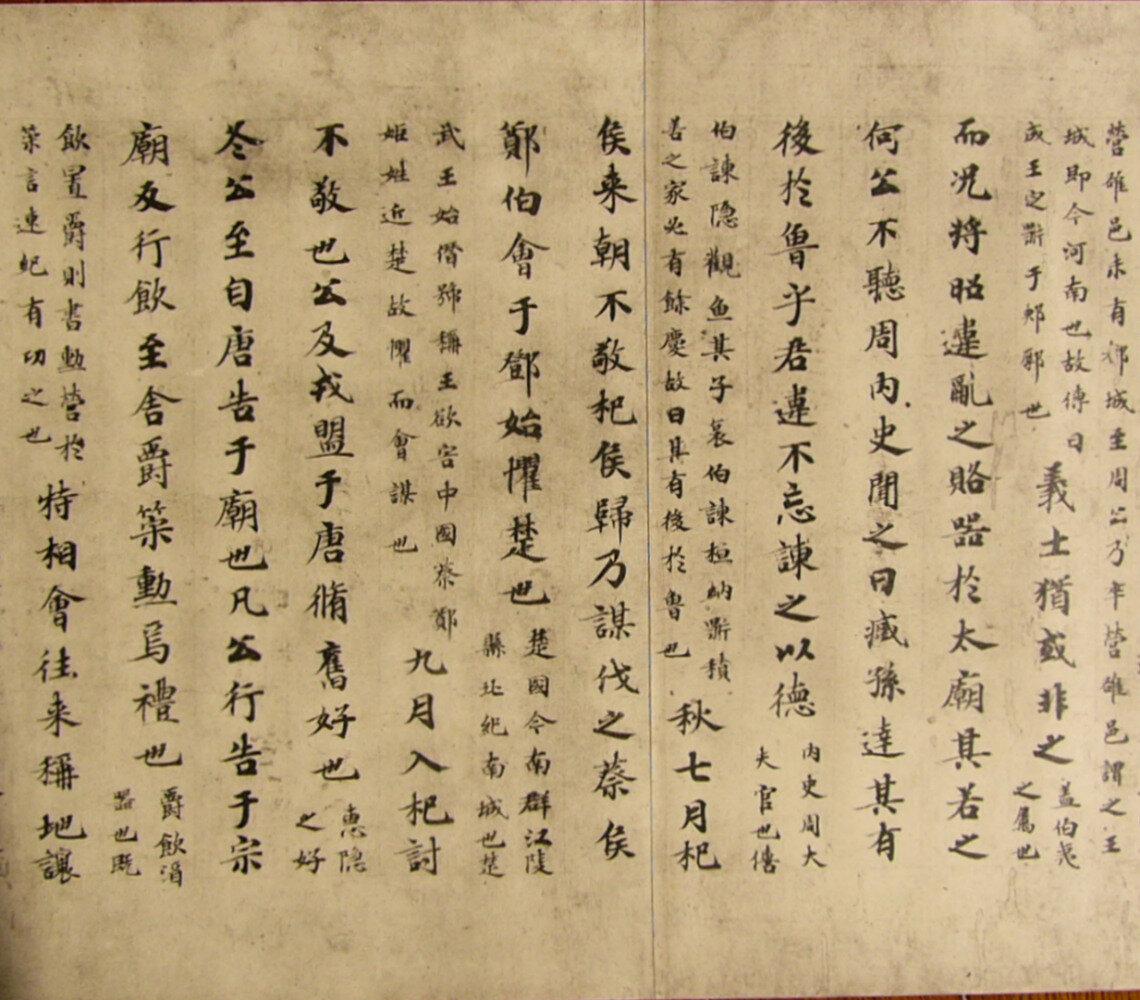 營雒邑未有都城至周公乃卒營雒邑謂之王
城即今河南也故傳曰
成王定鼎于郟鄏也
義士猶或非之
盖伯夷
之屬也
而况将昭違亂之賂器於太廟其若之
何公不聽周内史聞之曰臧孫達其有
後於魯乎君違不忘諫之以德
内史周大
夫官也僖
伯諫隐觀魚其子哀伯諫桓納鼎積
善之家必有餘慶故曰其有後於魯也
秋七月杞
侯来朝不敬杞侯歸乃謀伐之蔡侯
鄭伯會于鄧始懼楚也
楚國今南群江陵
縣北紀南城也楚
武王始僭號稱王欲害中國蔡鄭
姬姓近楚故懼而會謀也
九月入杞討
不敬也公及戎盟于唐脩舊好也
惠隐
之好
冬公至自唐告于廟也凡公行告于宗
廟反行飲至舍爵策勳焉禮也
爵飲酒
器也既
飲置爵則書勳勞於
策言速紀有功之也
特相會往来稱地讓